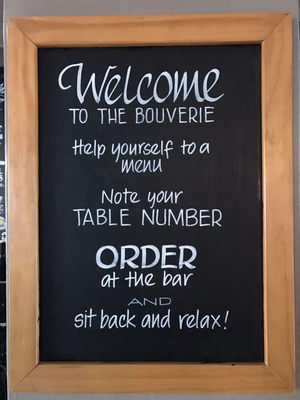 Welcome
TO THE BOUVERIE
Help yourself to a
menu
Note your
TABLE NUMBER
ORDER
at the bar
AND
sit back and relax!